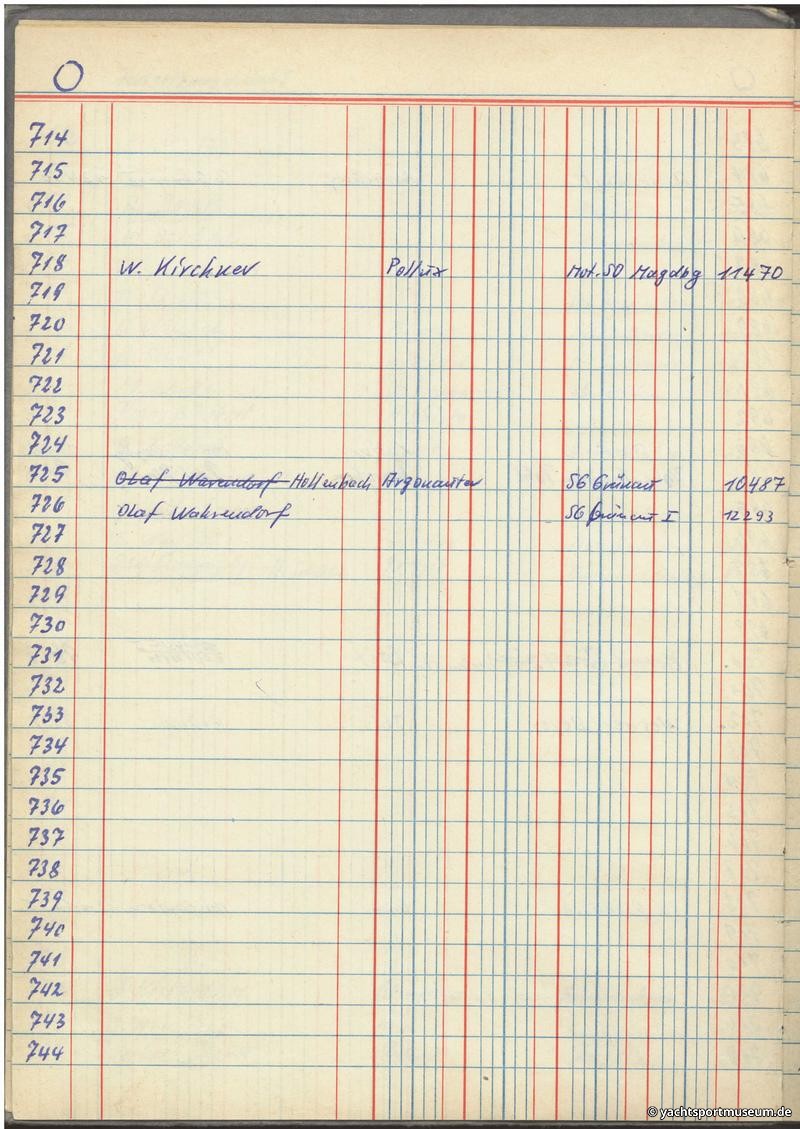 O
714
715
716
717
718 W. Kirchner Pollux Mot. SO Magdbg 11470
719
720
721
722
723
724
725 Olaf Warendorf Hollenbach Argonauter SG Grünau 10487
726 Olaf Wahrendorf SG Grünau I 12293
727
728
729
730
731
732
733
734
735
736
737
738
739
740
741
742
743
744
© yachtsportmuseum.de